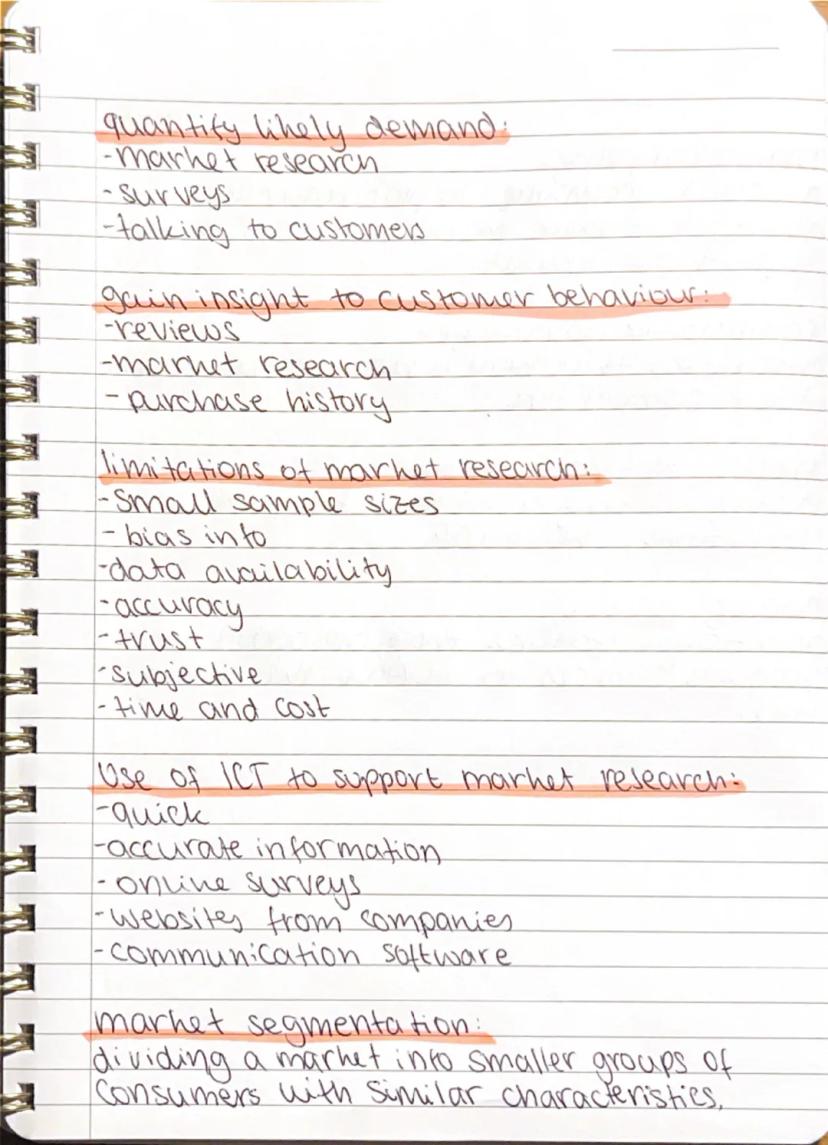 quantify likely demand:
-market research
-surveys
-talking to customers
gain insight to customer behaviour:
-reviews
-market research
-purchase history
limitations of market research:
-small sample sizes
-bias info
-data availability
-accuracy
-trust
-subjective
-time and cost
Use of ICT to support market research:
-quick
-accurate information
-online surveys
-websites from companies
-communication software
market segmentation:
dividing a market into smaller groups of
consumers with similar characteristics,